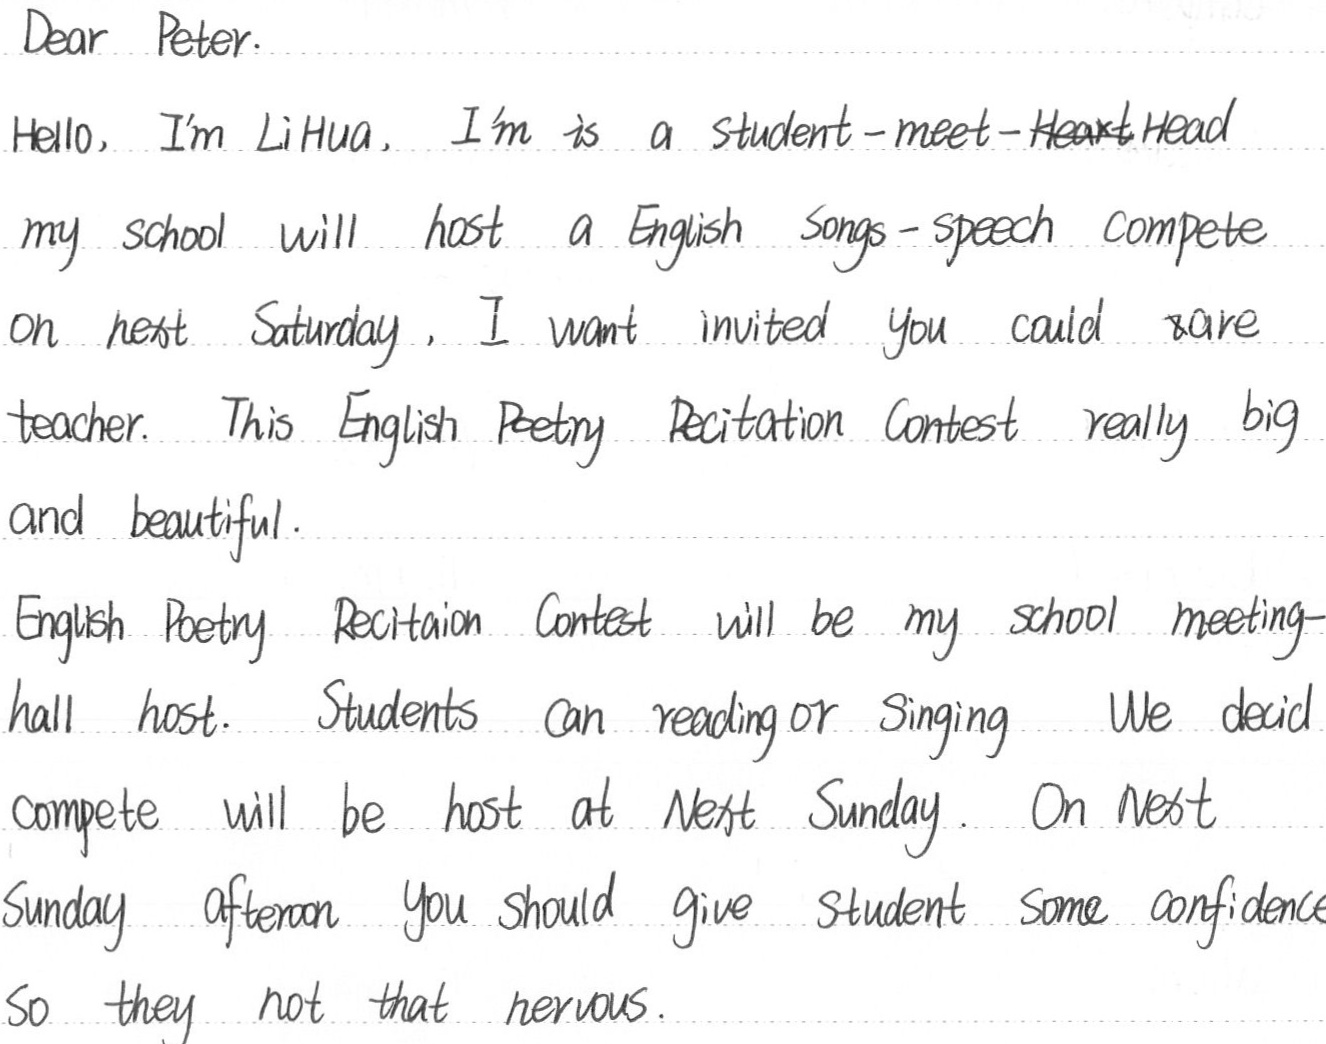 Dear Peter.
Hello, I'm Li Hua. I'm is a student-meet-Head
my school will host a English Songs-speech compete
on next Saturday, I want invited you could are
teacher. This English Poetry Recitation Contest really big
and beautiful.
English Poetry Recitaion Contest will be my school meeting-
hall host. Students can reading or singing We decid
compete will be host at Next Sunday. On Next
Sunday afteroon you should give student some confidence
so they not that nervous.